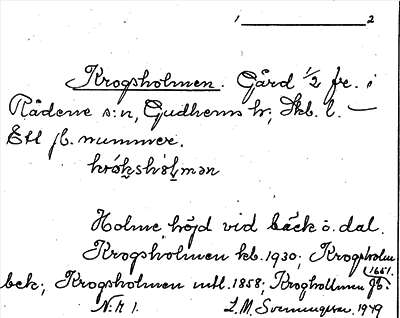 1 2
Krogsholmen. Gård 1/2 fr. i
Rådene s:n, Gudhems hr; Skb. l. —
Ett jb. nummer.
Holme, höjd vid bäck o. dal.
Krogsholmen kb. 1930; Krogsholm
1661.
bek; Krogsholmen mtl. 1858; Kroghollmen Jb.
N:r 1. L. M. Svenungsson. 1949